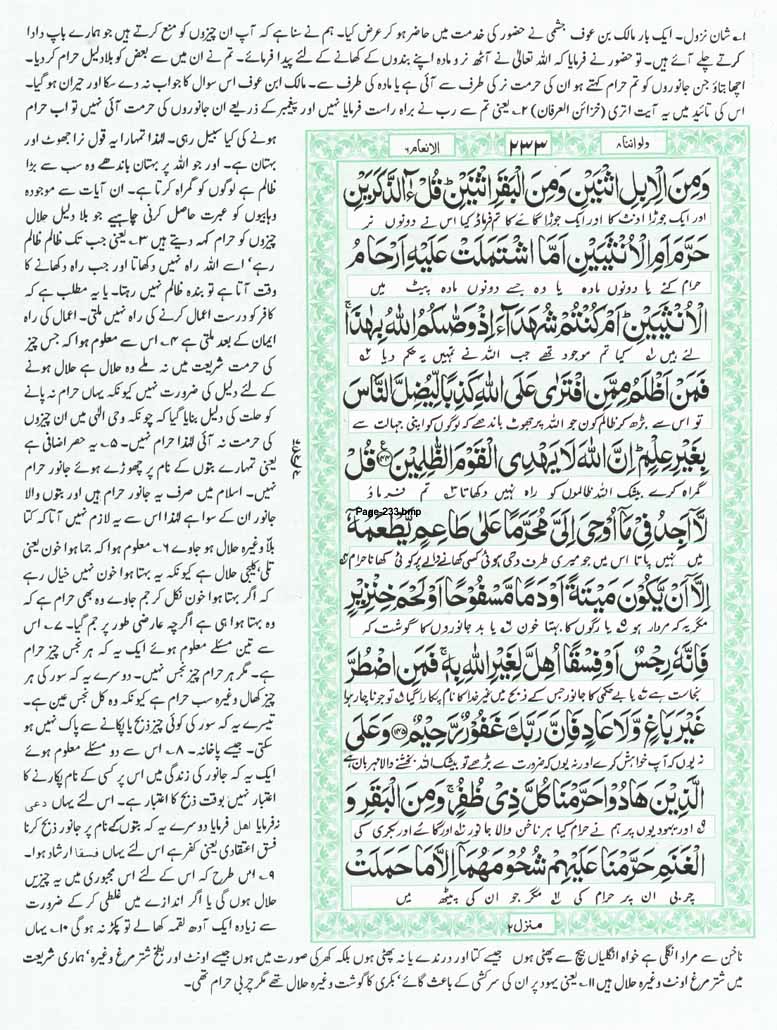 ۱؎ شان نزول۔ ایک بار مالک بن عوف جشمی نے حضور کی خدمت میں حاضر ہو کر عرض کیا۔ ہم نے سنا ہے کہ آپ ان چیزوں کو منع کرتے ہیں جو ہمارے باپ دادا
کرتے چلے آئے ہیں۔ تو حضور نے فرمایا کہ اللہ تعالیٰ نے آٹھ نر و مادہ اپنے بندوں کے کھانے کے لئے پیدا فرمائے۔ تم نے ان میں سے بعض کو بلا دلیل حرام کر دیا۔
اچھا بتاؤ جن جانوروں کو تم حرام کہتے ہو ان کی حرمت نر کی طرف سے آئی ہے یا مادہ کی طرف سے۔ مالک ابن عوف اس سوال کا جواب نہ دے سکا اور حیران ہو گیا۔
اس کی تائید میں یہ آیت اتری (خزائن العرفان) ۲؎ یعنی تم سے رب نے براہ راست فرمایا نہیں اور پیغمبر کے ذریعے ان جانوروں کی حرمت آئی نہیں تو اب حرام
ہونے کی کیا سبیل رہی۔ لہٰذا تمہارا یہ قول نرا جھوٹ اور
بہتان ہے۔ اور جو اللہ پر بہتان باندھے وہ سب سے بڑا
ظالم ہے لوگوں کو گمراہ کرتا ہے۔ ان آیات سے موجودہ
وہابیوں کو عبرت حاصل کرنی چاہیے جو بلا دلیل حلال
چیزوں کو حرام کہہ دیتے ہیں ۳؎ یعنی جب تک ظالم ظالم
رہے، اسے اللہ راہ نہیں دکھاتا اور جب راہ دکھانے کا
وقت آتا ہے تو بندہ ظالم نہیں رہتا۔ یا یہ مطلب ہے کہ
کافر کو درست اعمال کرنے کی راہ نہیں ملتی۔ اعمال کی راہ
ایمان کے بعد ملتی ہے ۴؎ اس سے معلوم ہوا کہ جس چیز
کی حرمت شریعت میں نہ ملے وہ حلال ہے حلال ہونے
کے لئے دلیل کی ضرورت نہیں کیونکہ یہاں حرام نہ پانے
کو حلت کی دلیل بنایا گیا کہ چونکہ وحی الٰہی میں ان چیزوں
کی حرمت نہ آئی لہٰذا حرام نہیں۔ ۵؎ یہ حصر اضافی ہے
یعنی تمہارے بتوں کے نام پر چھوڑے ہوئے جانور حرام
نہیں۔ اسلام میں صرف یہ جانور حرام ہیں اور بتوں والا
جانور ان کے سوا ہے لہٰذا اس سے یہ لازم نہیں آتا کہ کتا
بلا وغیرہ حلال ہو جاوے ۶؎ معلوم ہوا کہ جما ہوا خون یعنی
تلی، کلیجی حلال ہے کیونکہ یہ بہتا ہوا خون نہیں خیال رہے
کہ اگر بہتا ہوا خون نکل کر جم جاوے وہ بھی حرام ہے کہ
وہ بہتا ہوا ہی ہے اگرچہ عارضی طور پر جم گیا۔ ۷؎ اس
سے تین مسئلے معلوم ہوئے ایک یہ کہ ہر نجس چیز حرام
ہے۔ مگر ہر حرام چیز نجس نہیں۔ دوسرے یہ کہ سور کی ہر
چیز کھال وغیرہ سب حرام ہے کیونکہ وہ کل نجس عین ہے۔
تیسرے یہ کہ سور کی کوئی چیز ذبح یا پکانے سے پاک نہیں ہو
سکتی۔ جیسے پاخانہ۔ ۸؎ اس سے دو مسئلے معلوم ہوئے
ایک یہ کہ جانور کی زندگی میں اس پر کسی کے نام پکارنے کا
اعتبار نہیں بوقت ذبح کا اعتبار ہے۔ اس لئے یہاں دعی
نہ فرمایا اھل فرمایا دوسرے یہ کہ بتوں کے نام پر جانور ذبح کرنا
فسق اعتقادی یعنی کفر ہے اس لئے یہاں فسقا ارشاد ہوا۔
۹؎ اس طرح کہ اس کے لئے اس مجبوری میں یہ چیزیں
حلال ہوں گی یا اگر اندازے میں غلطی کر کے ضرورت
سے زیادہ ایک آدھ لقمہ کھا لے تو پکڑ نہ ہو گی ۱۰؎ یہاں
ولواننا ۸ ۲۳۳ الانعام ۶
وَمِنَ الْاِبِلِ اثْنَيْنِ وَمِنَ الْبَقَرِ اثْنَيْنِ ؕ قُلْ ءٰٓالذَّكَرَيْنِ
اور ایک جوڑا اونٹ کا اور ایک جوڑا گائے کا تم فرماؤ کیا اس نے دونوں نر
حَرَّمَ اَمِ الْاُنْثَيَيْنِ اَمَّا اشْتَمَلَتْ عَلَيْهِ اَرْحَامُ
حرام کئے یا دونوں مادہ یا وہ جسے دونوں مادہ پیٹ میں
الْاُنْثَيَيْنِ ؕ اَمْ كُنْتُمْ شُهَدَآءَ اِذْ وَصّٰىكُمُ اللّٰهُ بِهٰذَا ۚ
لئے ہیں کیا تم موجود تھے جب اللہ نے تمہیں یہ حکم دیا
فَمَنْ اَظْلَمُ مِمَّنِ افْتَرٰى عَلَى اللّٰهِ كَذِبًا لِّيُضِلَّ النَّاسَ
تو اس سے بڑھ کر ظالم کون جو اللہ پر جھوٹ باندھے کہ لوگوں کو اپنی جہالت سے
بِغَيْرِ عِلْمٍ ؕ اِنَّ اللّٰهَ لَا يَهْدِى الْقَوْمَ الظّٰلِمِيْنَ ﴿۱۴۴﴾ قُلْ
گمراہ کرے بیشک اللہ ظالموں کو راہ نہیں دکھاتا ۳ تم فرماؤ
Page-233.bmp
لَّآ اَجِدُ فِىْ مَآ اُوْحِىَ اِلَىَّ مُحَرَّمًا عَلٰى طَاعِمٍ يَّطْعَمُهٗٓ
میں نہیں پاتا اس میں جو میری طرف وحی ہوئی کسی کھانے والے پر کوئی کھانا حرام
اِلَّآ اَنْ يَّكُوْنَ مَيْتَةً اَوْ دَمًا مَّسْفُوْحًا اَوْ لَحْمَ خِنْزِيْرٍ
مگر یہ کہ مردار ہو یا رگوں کا بہتا خون یا بد جانوروں کا گوشت کہ
فَاِنَّهٗ رِجْسٌ اَوْ فِسْقًا اُهِلَّ لِغَيْرِ اللّٰهِ بِهٖ ۚ فَمَنِ اضْطُرَّ
نجاست ہے یا بے حکمی کا جانور جس کے ذبح میں غیر خدا کا نام پکارا گیا تو جو ناچار ہوا
غَيْرَ بَاغٍ وَّلَا عَادٍ فَاِنَّ رَبَّكَ غَفُوْرٌ رَّحِيْمٌ ﴿۱۴۵﴾ وَعَلَى
نہ یوں کہ آپ خواہش کرے اور نہ یوں کہ ضرورت سے بڑھے تو بیشک اللہ بخشنے والا مہربان ہے
الَّذِيْنَ هَادُوْا حَرَّمْنَا كُلَّ ذِىْ ظُفُرٍ ۚ وَمِنَ الْبَقَرِ وَ
اور یہودیوں پر ہم نے حرام کیا ہر ناخن والا جانور اور گائے اور بکری کی
الْغَنَمِ حَرَّمْنَا عَلَيْهِمْ شُحُوْمَهُمَآ اِلَّا مَا حَمَلَتْ
چربی ان پر حرام کی مگر جو ان کی پیٹھ میں
منزل ۲
ناخن سے مراد انگلی ہے خواہ انگلیاں بیچ سے پھٹی ہوں جیسے کتا اور درندے یا نہ پھٹی ہوں بلکہ کھر کی صورت میں ہوں جیسے اونٹ اور بطخ شتر مرغ وغیرہ، ہماری شریعت
میں شتر مرغ اونٹ وغیرہ حلال ہیں ۱۱؎ یعنی یہود پر ان کی سرکشی کے باعث گائے، بکری کا گوشت وغیرہ حلال تھے مگر چربی حرام تھی۔